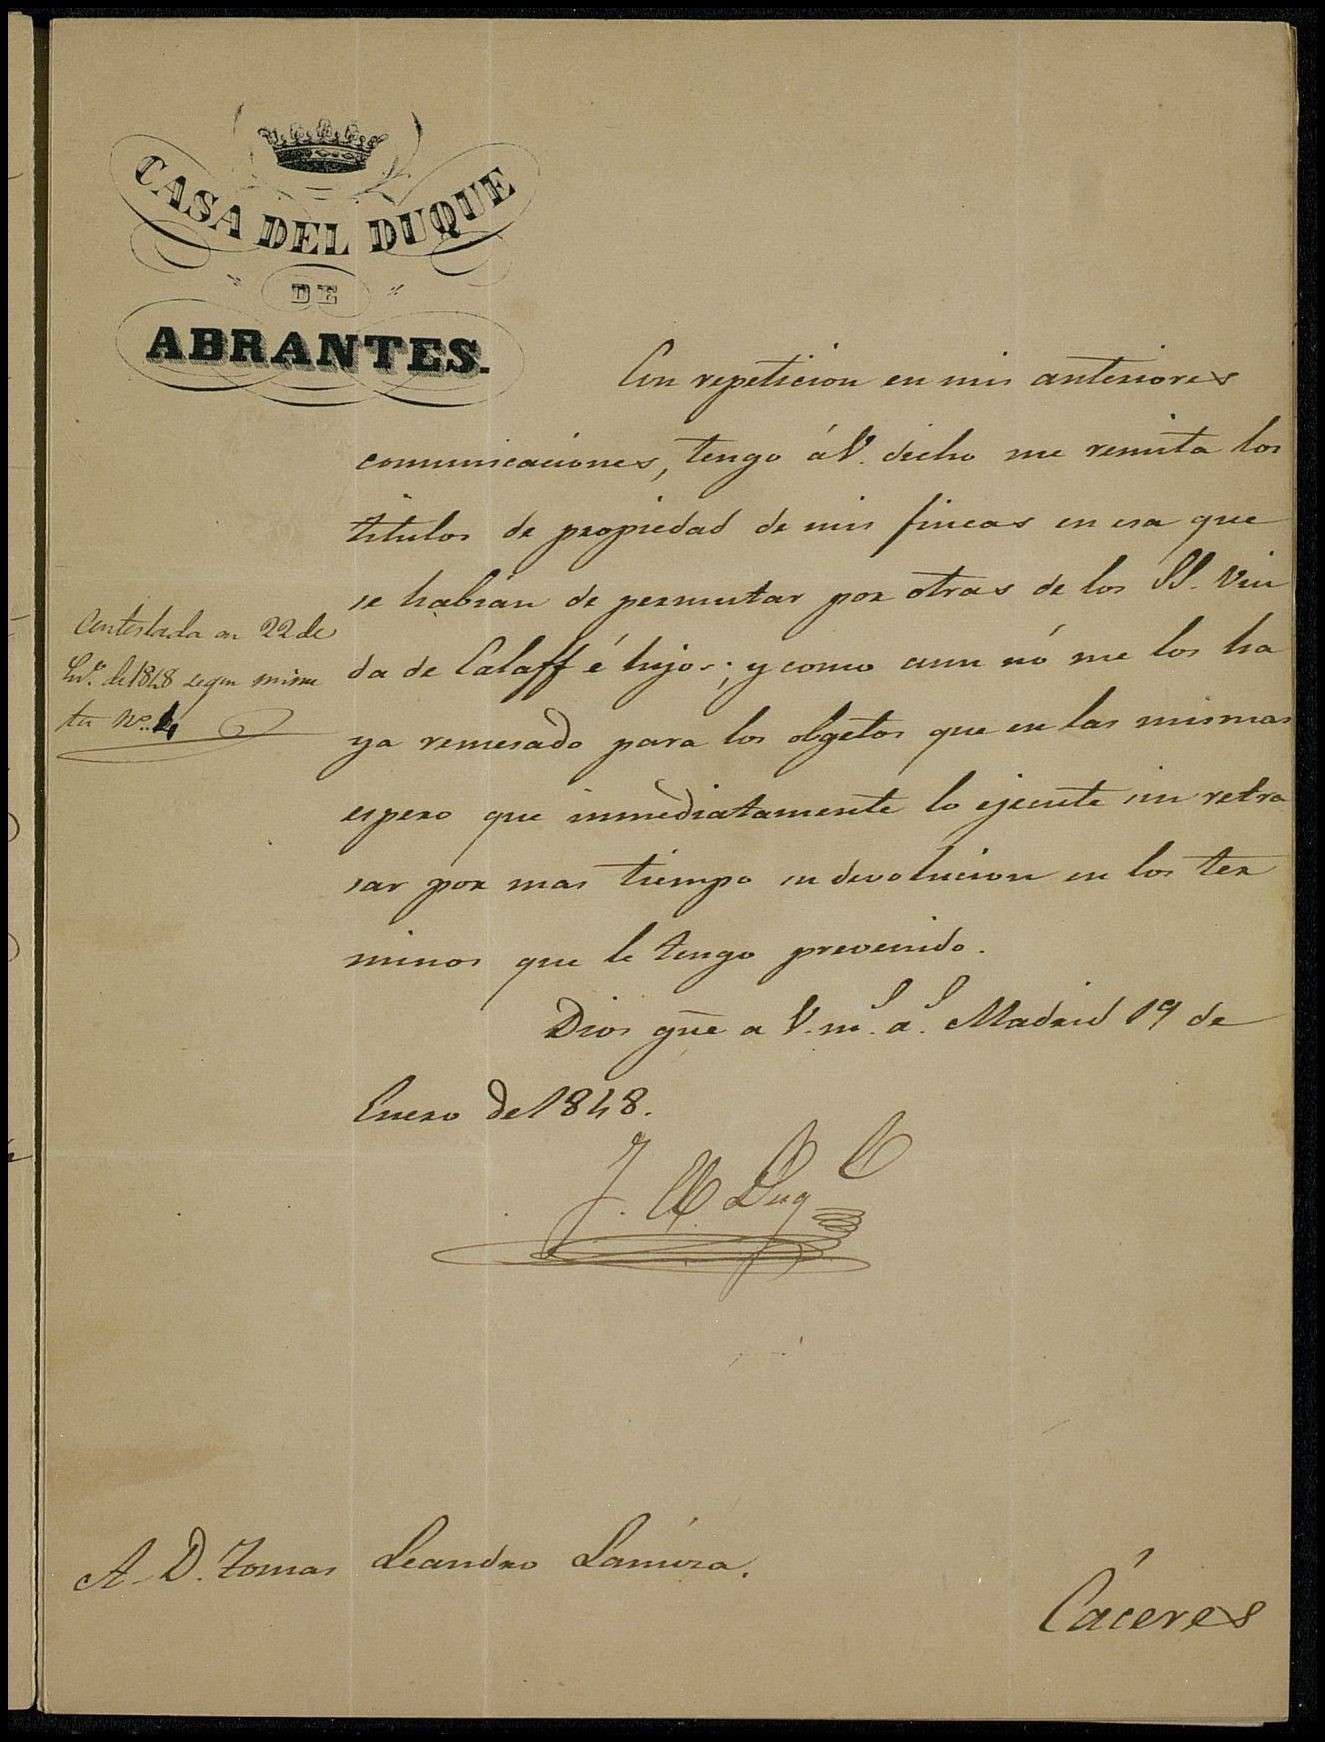 CASA DEL DUQUE
DE
ABRANTES.
Con repeticion en mis anteriores
comunicaciones, tengo á V. dicho me remita los
titulos de propiedad de mis fincas en esa que
se habian de permutar por otras de los SS. Viu
da de Calaff é hijos; y como aun nó me los ha
ya remesado para los obgetos que en las mismas
espero que inmediatamente lo ejecute sin retra
sar por mas tiempo su devolucion en los ter
minos que le tengo prevenido.
Dios gũe a V. m.s a.s Madrid 19 de
Enero de 1848.
Contestada en 22 de
En.o de 1848 segun minu
ta No. 4
J. El Duq
A D. Tomas Leandro
Cáceres